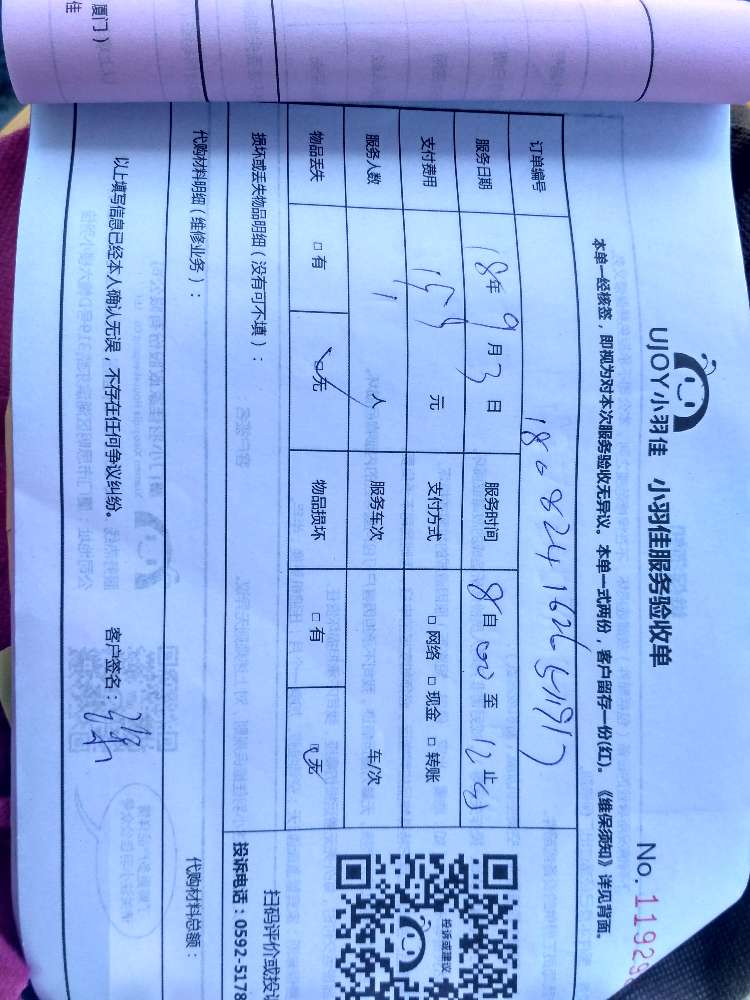 UJOY小羽佳 小羽佳服务验收单
No.11929
本单一经核签，即视为对本次服务验收无异议。本单一式两份，客户留存一份(红)。《维保须知》详见背面。
订单编号
服务日期 18年9月3日 服务时间 8自00至12止
支付费用 159元 支付方式 □网络 □现金 □转账
服务人数 1人 服务车次 车/次
物品丢失 □有 □无 物品损坏 □有 □无
损坏或丢失物品明细（没有可不填）：
代购材料明细（维修业务）： 代购材料总额：
以上填写信息已经本人确认无误，不存在任何争议纠纷。 客户签名：
投诉或建议
扫码评价或投
投诉电话：0592-5178
厦门）
佳